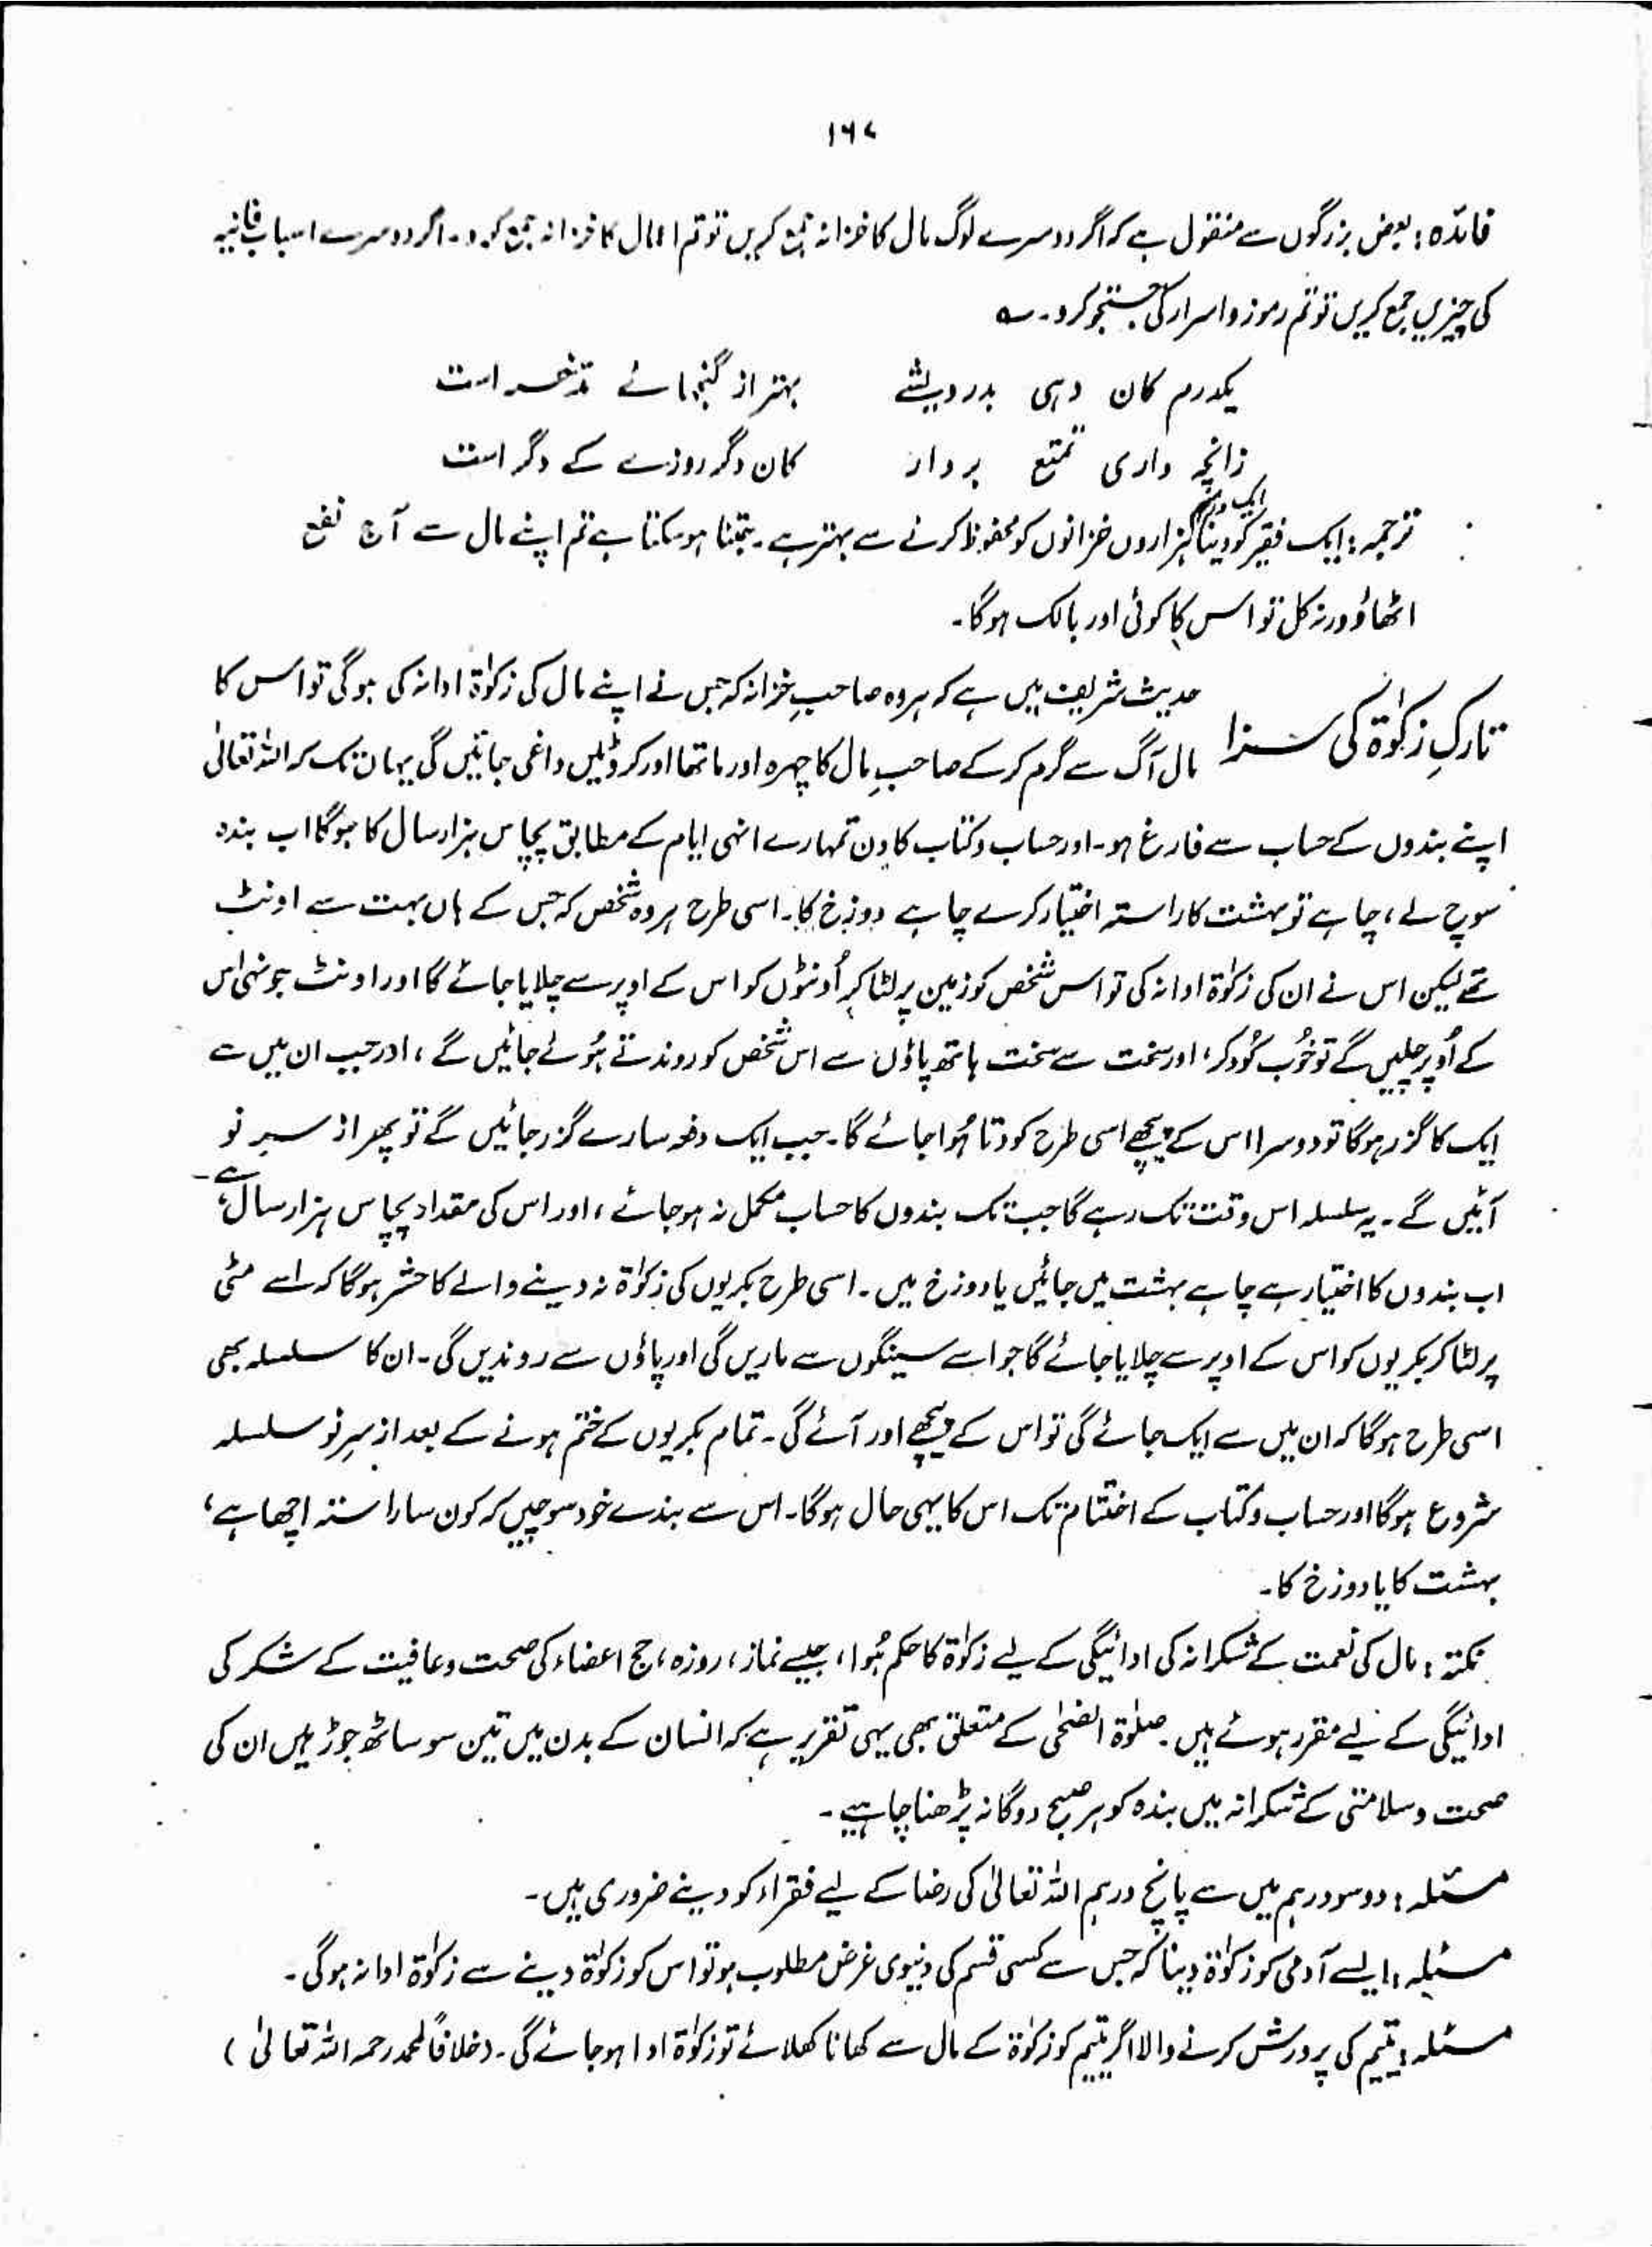 ۱۶۷
فائدہ : بعض بزرگوں سے منقول ہے کہ اگر دوسرے لوگ مال کا خزانہ جمع کریں تو تم اعمال کا خزانہ جمع کرو۔ اگر دوسرے اسبابِ فانیہ
کی چیزیں جمع کریں تو تم رموز و اسرار کی جستجو کرو۔ ؎
یکدرم کان دہی بدرویشے بہتر از گنجہائے مدّخر است
زانچہ داری تمتع بردار کان دگر روزے کے دگر است
ترجمہ : ایک فقیر کو ایک درہم دینا ہزاروں خزانوں کو محفوظ کرنے سے بہتر ہے۔ جتنا ہو سکتا ہے تم اپنے مال سے آج نفع
اٹھاؤ ورنہ کل تو اس کا کوئی اور مالک ہوگا۔
تارکِ زکوٰۃ کی سزا
حدیث شریف میں ہے کہ ہر وہ صاحبِ خزانہ کہ جس نے اپنے مال کی زکوٰۃ ادا نہ کی ہوگی تو اس کا
مال آگ سے گرم کرکے صاحبِ مال کا چہرہ اور ماتھا اور کروٹیں داغی جائیں گی یہاں تک کہ اللہ تعالیٰ
اپنے بندوں کے حساب سے فارغ ہو۔ اور حساب و کتاب کا دن تمہارے انہی ایام کے مطابق پچاس ہزار سال کا ہوگا اب بندہ
سوچ لے، چاہے تو بہشت کا راستہ اختیار کرے چاہے دوزخ کا۔ اسی طرح ہر وہ شخص کہ جس کے ہاں بہت سے اونٹ
تھے لیکن اس نے ان کی زکوٰۃ ادا نہ کی تو اس شخص کو زمین پر لٹا کر اُونٹوں کو اس کے اوپر سے چلایا جائے گا اور اونٹ جونہی اس
کے اُوپر چلیں گے تو خُوب کُود کر، اور سخت سے سخت ہاتھ پاؤں سے اس شخص کو روندتے ہُوئے جائیں گے، اور جب ان میں سے
ایک کا گزر ہوگا تو دوسرا اس کے پیچھے اسی طرح کودتا ہُوا جائے گا۔ جب ایک دفعہ سارے گزر جائیں گے تو پھر از سرِ نو
آئیں گے۔ یہ سلسلہ اس وقت تک رہے گا جب تک بندوں کا حساب مکمل نہ ہو جائے، اور اس کی مقدار پچاس ہزار سال ہے۔
اب بندوں کا اختیار ہے چاہے بہشت میں جائیں یا دوزخ میں۔ اسی طرح بکریوں کی زکوٰۃ نہ دینے والے کا حشر ہوگا کہ اسے مٹی
پر لٹا کر بکریوں کو اس کے اوپر سے چلایا جائے گا جو اسے سینگوں سے ماریں گی اور پاؤں سے روندیں گی۔ ان کا سلسلہ بھی
اسی طرح ہوگا کہ ان میں سے ایک جائے گی تو اس کے پیچھے اور آئے گی۔ تمام بکریوں کے ختم ہونے کے بعد از سرِ نو سلسلہ
شروع ہوگا اور حساب و کتاب کے اختتام تک اس کا یہی حال ہوگا۔ اس سے بندے خود سوچیں کہ کون سا راستہ اچھا ہے،
بہشت کا یا دوزخ کا۔
نکتہ : مال کی نعمت کے شکرانہ کی ادائیگی کے لیے زکوٰۃ کا حکم ہُوا، جیسے نماز، روزہ، حج اعضاء کی صحت و عافیت کے شکر کی
ادائیگی کے لیے مقرر ہوئے ہیں۔ صلوٰۃ الضحیٰ کے متعلق بھی یہی تقریر ہے کہ انسان کے بدن میں تین سو ساٹھ جوڑ ہیں ان کی
صحت و سلامتی کے شکرانہ میں بندہ کو ہر صبح دوگانہ پڑھنا چاہیے۔
مسئلہ : دو سو درہم میں سے پانچ درہم اللہ تعالیٰ کی رضا کے لیے فقراء کو دینے ضروری ہیں۔
مسئلہ : ایسے آدمی کو زکوٰۃ دینا کہ جس سے کسی قسم کی دنیوی غرض مطلوب ہو تو اس کو زکوٰۃ دینے سے زکوٰۃ ادا نہ ہوگی۔
مسئلہ : یتیم کی پرورش کرنے والا اگر یتیم کو زکوٰۃ کے مال سے کھانا کھلائے تو زکوٰۃ ادا ہو جائے گی۔ (خلافاً لمحمد رحمہ اللہ تعالیٰ)